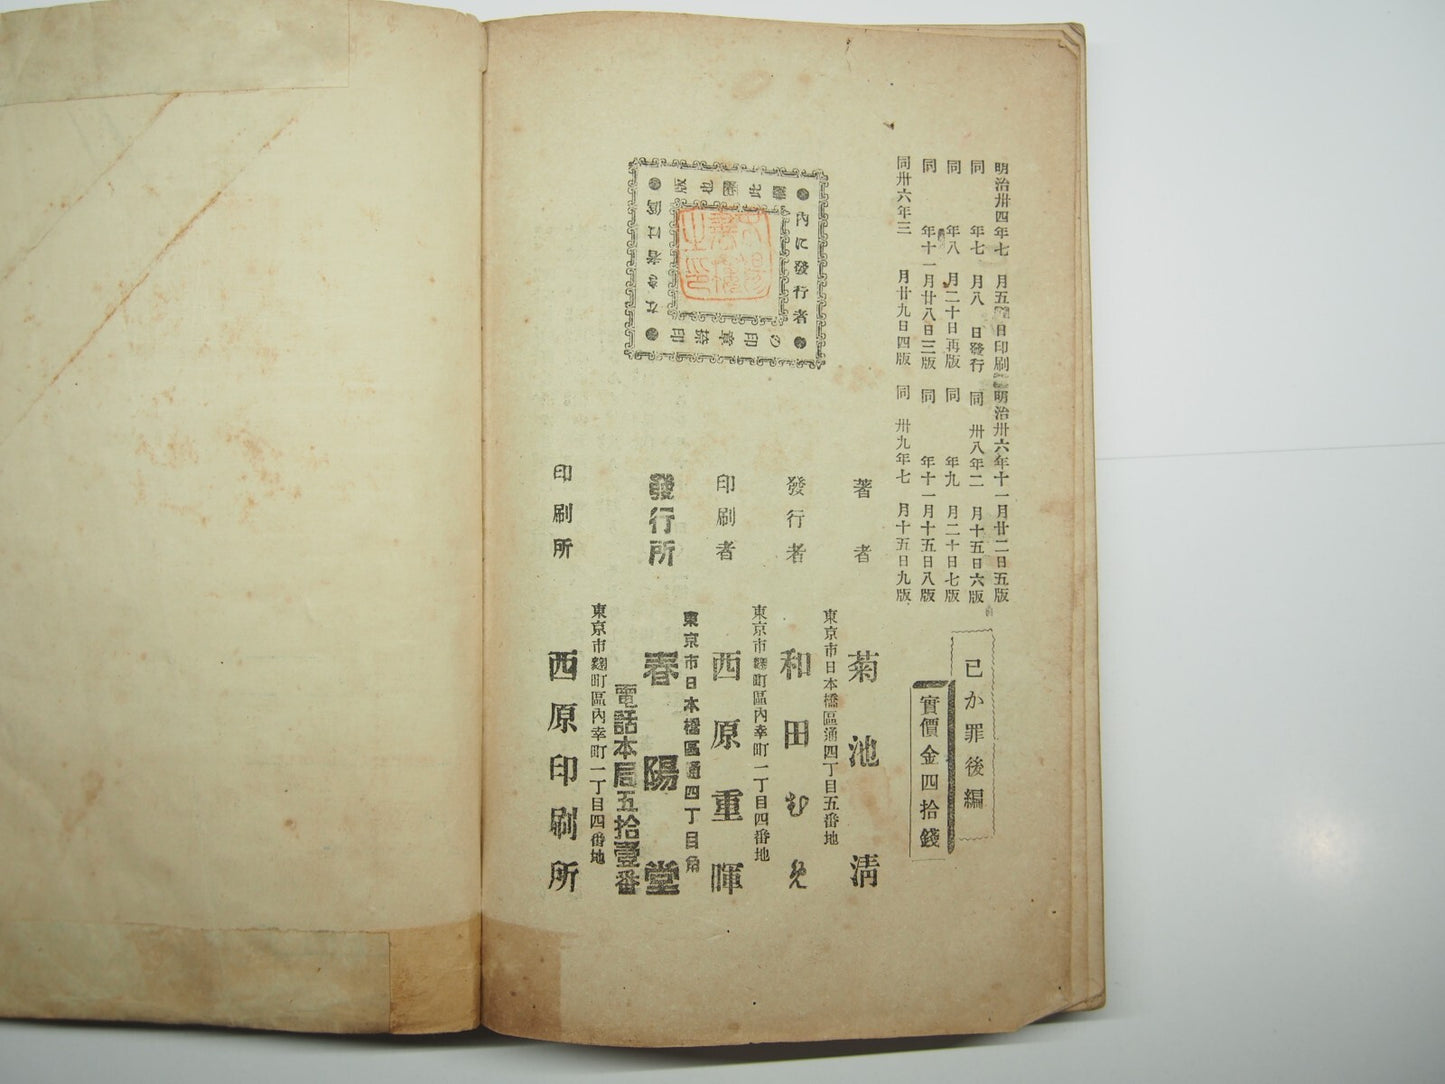 明治卅四年七月五日印刷
同年七月八日發行
同年八月二十日再版
同年十一月廿八日三版
同卅六年三月廿九日四版
明治卅六年十一月廿二日五版
同卅八年二月十五日六版
同年九月二十日七版
同年十一月十五日八版
同卅九年七月十五日九版
己か罪後編
實價金四拾錢
內に發行者
の印章捺印
なき者は僞
版也
著者
菊池清
東京市日本橋區通四丁目五番地
發行者
和田むめ
東京市麹町區內幸町一丁目四番地
印刷者
西原重暉
東京市日本橋區通四丁目角
發行所
春陽堂
電話本局五拾壹番
東京市麹町區內幸町一丁目四番地
印刷所
西原印刷所